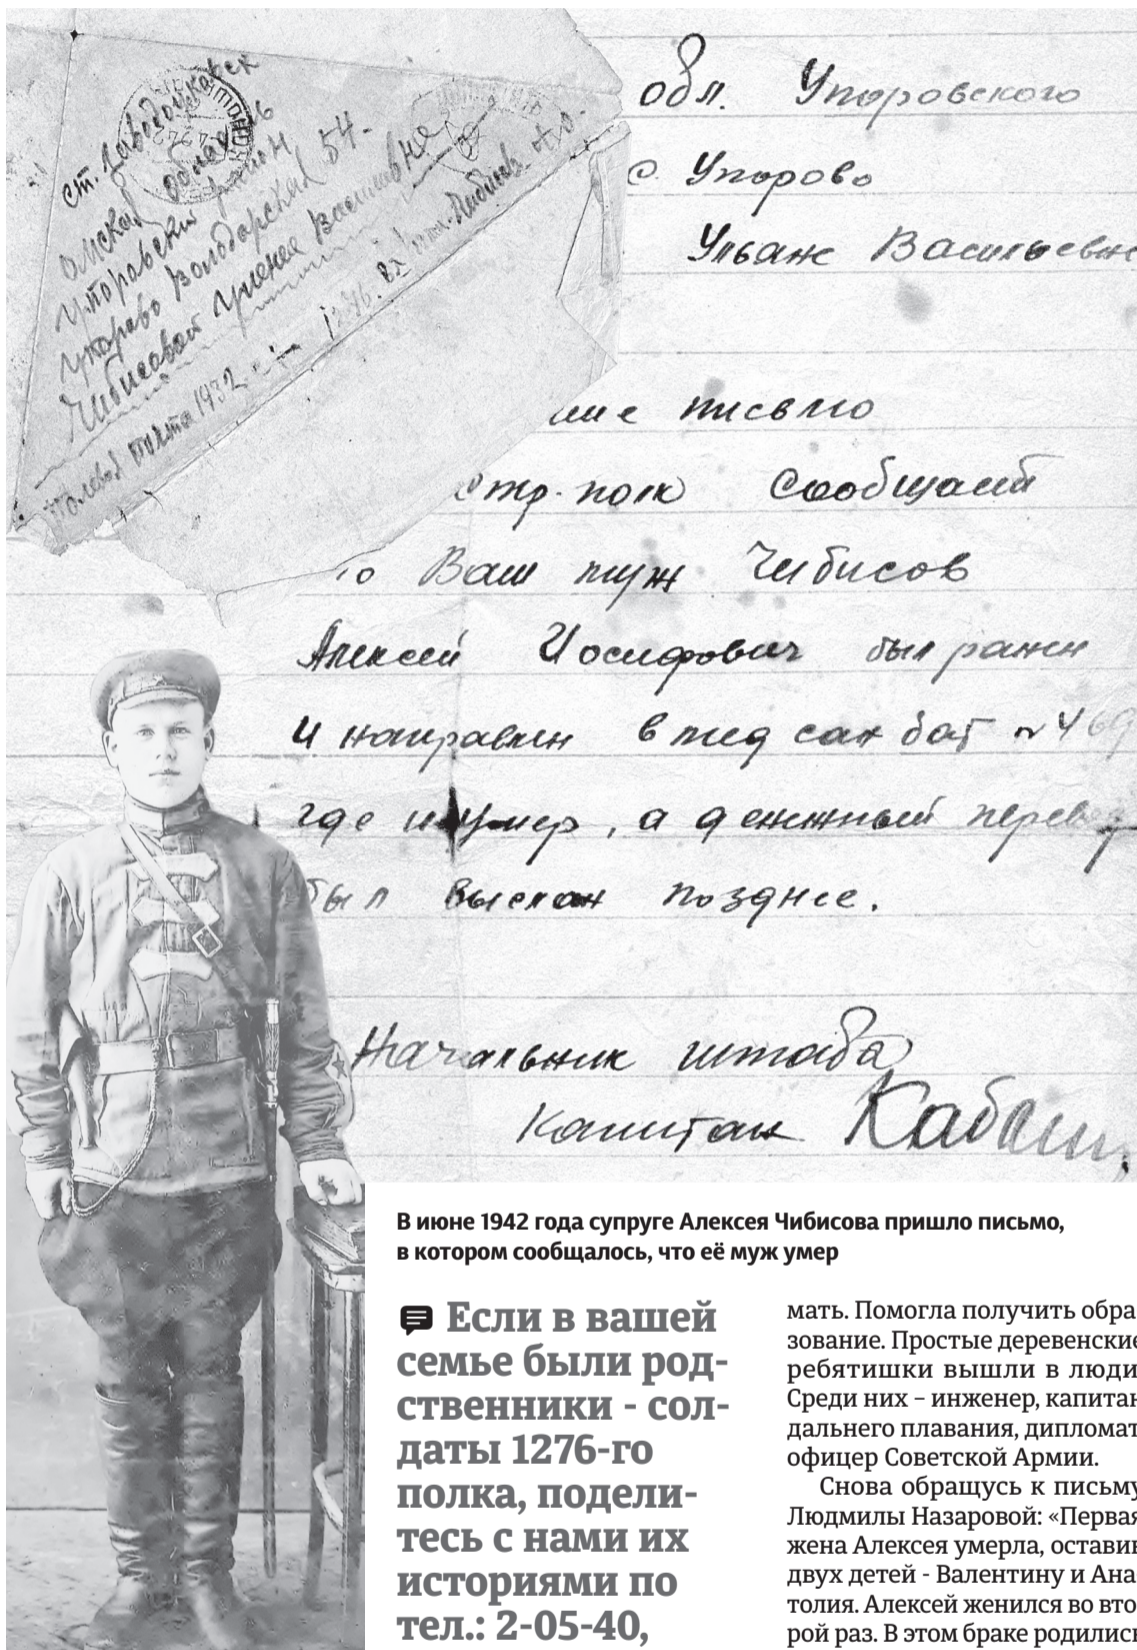 ст. Заводоуковск
Омская область
Упоровский район
Упорово Володарская 54.
Чибисовой Ульяне Васильевне
Полевая почта 1932
обл. Упоровского
с. Упорово
Ульане Васильевне
письмо
стр. полк сообщает
Ваш муж Чибисов
Алексей Иосифович был ранен
и направлен в мед сан бат № 469
где и умер, а денежный перевод
был выслан позднее.
Начальник штаба
Капитан
В июне 1942 года супруге Алексея Чибисова пришло письмо,
в котором сообщалось, что её муж умер
Если в вашей
семье были род-
ственники - сол-
даты 1276-го
полка, подели-
тесь с нами их
историями по
тел.: 2-05-40,
мать. Помогла получить обра-
зование. Простые деревенские
ребятишки вышли в люди.
Среди них – инженер, капитан
дальнего плавания, дипломат,
офицер Советской Армии.
Снова обращусь к письму
Людмилы Назаровой: «Первая
жена Алексея умерла, оставив
двух детей - Валентину и Ана-
толия. Алексей женился во вто-
рой раз. В этом браке родились